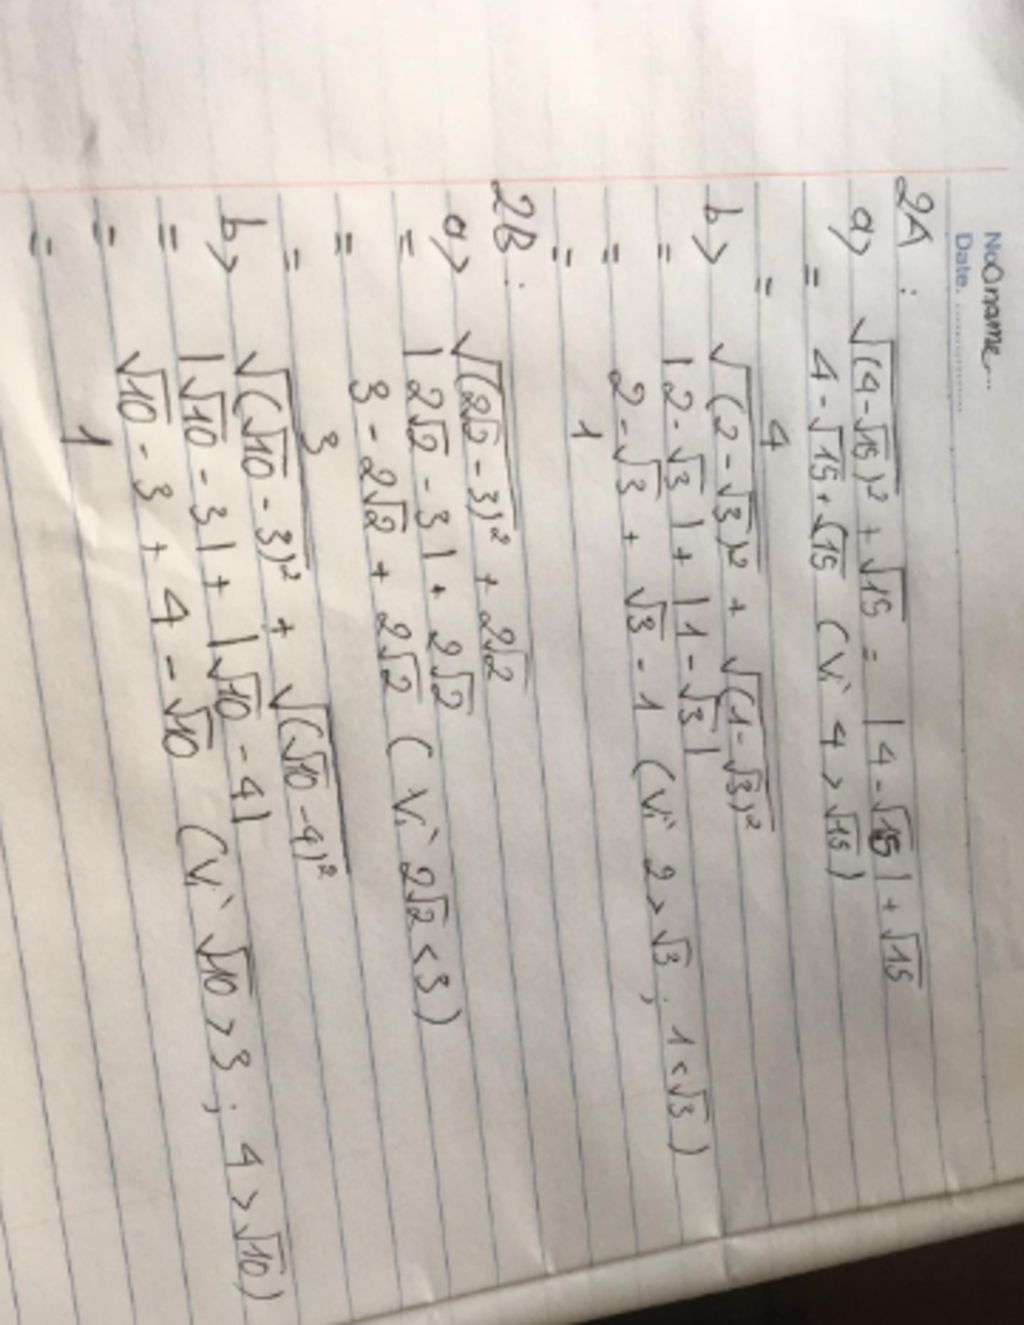 No Oname...
Date. ............
2A :
a> √(4-√15)² + √15 = |4-√15| + √15
= 4-√15+√15 (Vì 4 > √15)
= 4
b> √(2-√3)² + √(1-√3)²
= |2-√3| + |1-√3|
= 2-√3 + √3 - 1 (Vì 2 > √3 ; 1 < √3)
= 1
2B :
a> √(2√2 - 3)² + 2√2
= |2√2 - 3| + 2√2
= 3 - 2√2 + 2√2 (Vì 2√2 < 3)
= 3
b> √(√10 - 3)² + √(√10 - 4)²
= |√10 - 3| + |√10 - 4|
= √10 - 3 + 4 - √10 (Vì √10 > 3 ; 4 > √10)
= 1